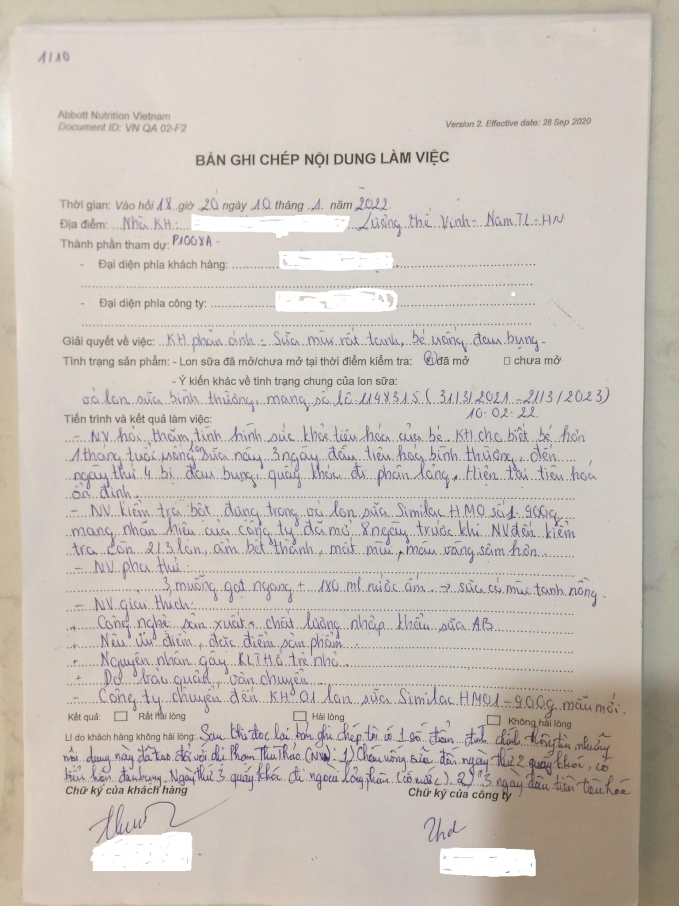 1/10
Abbott Nutrition Vietnam
Document ID: VN QA 02-F2
Version 2. Effective date: 28 Sep 2020
BẢN GHI CHÉP NỘI DUNG LÀM VIỆC
Thời gian: Vào hồi 18 giờ 20 ngày 10 tháng 1 năm 2022
Địa điểm: Nhà KH: Lương Thế Vinh - Nam TL - HN
Thành phần tham dự:
- Đại diện phía khách hàng:
- Đại diện phía công ty:
Giải quyết về việc: KH phản ánh: Sữa mùi rất tanh, bé uống đau bụng.
Tình trạng sản phẩm: - Lon sữa đã mở/chưa mở tại thời điểm kiểm tra: đã mở chưa mở
- Ý kiến khác về tình trạng chung của lon sữa:
vỏ lon sữa bình thường, mang số lô 1148315 (31/3/2021 - 21/3/2023)
10.02.22
Tiến trình và kết quả làm việc:
- NV hỏi thăm tình hình sức khỏe tiêu hóa của bé. KH cho biết bé hơn
1 tháng tuổi uống sữa này 3 ngày đầu tiêu hóa bình thường, đến
ngày thứ 4 bị đau bụng, quấy khóc, đi phân lỏng. Hiện tại tiêu hoá
ổn định.
- NV kiểm tra bột đang trong vỏ lon sữa Similac HMO số 1-900g
mang nhãn hiệu của công ty đã mở 8 ngày trước khi NV đến kiểm
tra còn 2/3 lon, ẩm bết thành, mất mùi, màu vàng sậm hơn.
- NV pha thử:
3 muỗng gạt ngang + 180 ml nước ấm → sữa có mùi tanh nồng.
- NV giải thích:
+ Công nghệ sản xuất, chất lượng nhập khẩu sữa AB
+ Nêu ưu điểm, đặc điểm sản phẩm
+ Nguyên nhân gây RLTH ở trẻ nhỏ.
+ Do bảo quản, vận chuyển
- Công ty chuyển đến KH 01 lon sữa Similac HMO 1-900g mẫu mới.
Kết quả: Rất hài lòng Hài lòng Không hài lòng
Lí do khách hàng không hài lòng: Sau khi đọc lại bản ghi chép tôi có 1 số điểm đính chính thông tin những
nội dung này đã trao đổi với chị Phạm Thu Thảo (NV): 1) Cháu uống sữa đến ngày thứ 2 quấy khóc, có
biểu hiện đau bụng. Ngày thứ 3 quấy khóc đi ngoài lỏng phân (có nước). 2) "3 ngày đầu tiên tiêu hóa
Chữ ký của khách hàng
Chữ ký của công ty